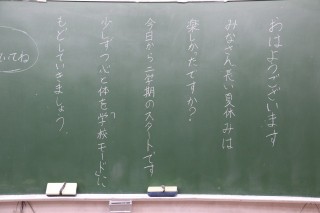 おはようございます
みなさん長い夏休みは
楽しかったですか?
今日から二学期のスタートです
少しずつ心と体を「学校モード」に
もどしていきましょう。
いてね